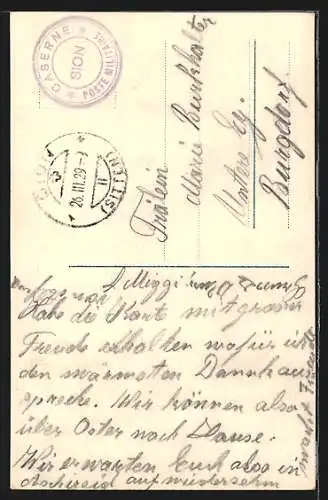 CASERNE
SION
POSTE MILITAIRE
SION
(SITTEN)
26.III.29
Frälein
Marie Burkhalter
Untere Ey.
Burgdorf
Habe die Kart mit grosser
Freude erhalten wofür
den wärmsten Dannk aus
spreche. Wir können also
über Oster nach Hause.
Wir erwarten Euch also in
auf wiedersehn